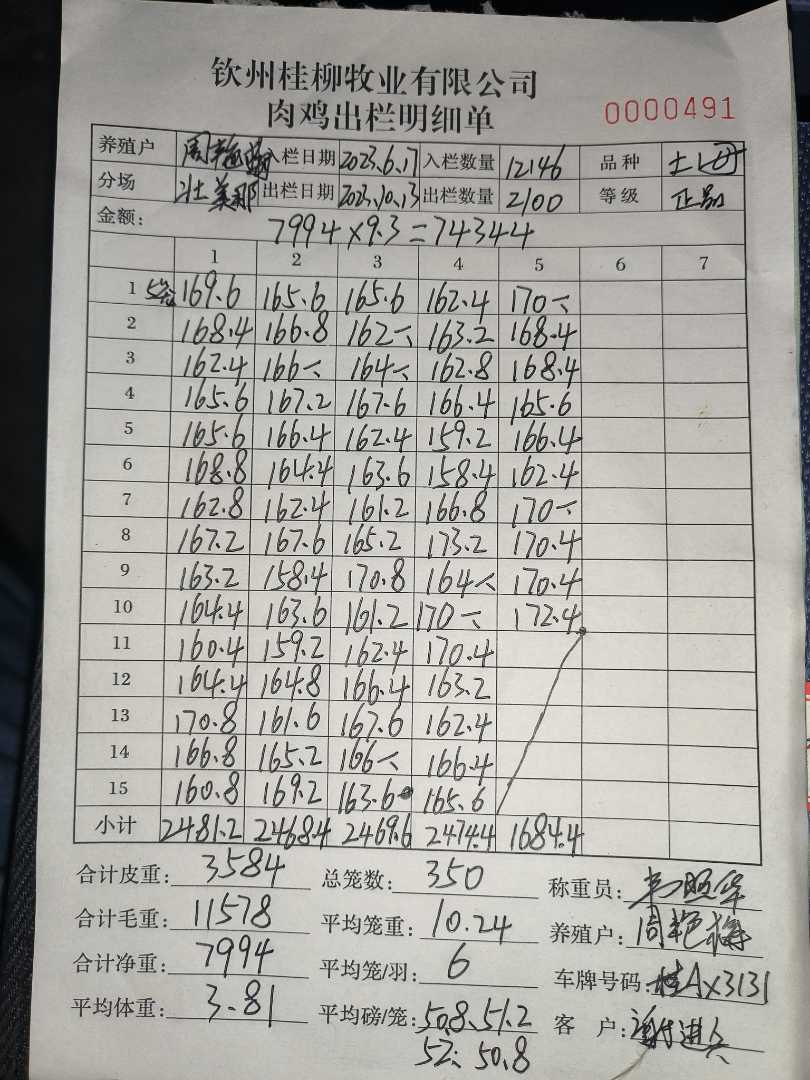 钦州桂柳牧业有限公司
肉鸡出栏明细单 0000491
养殖户 周艳梅 入栏日期 2023.6.17 入栏数量 12146 品种 土
分场 壮美那 出栏日期 2023.10.13 出栏数量 2100 等级 正品
金额: 7994×9.3=74344
1 2 3 4 5 6 7
1 5笼 169.6 165.6 165.6 162.4 170.
2 168.4 166.8 162. 163.2 168.4
3 162.4 166. 164. 162.8 168.4
4 165.6 167.2 167.6 166.4 165.6
5 165.6 166.4 162.4 159.2 166.4
6 168.8 164.4 163.6 158.4 162.4
7 162.8 162.4 161.2 166.8 170.
8 167.2 167.6 165.2 173.2 170.4
9 163.2 158.4 170.8 164. 170.4
10 164.4 163.6 161.2 170. 172.4
11 160.4 159.2 162.4 170.4
12 164.4 164.8 166.4 163.2
13 170.8 161.6 167.6 162.4
14 166.8 165.2 166. 166.4
15 160.8 169.2 163.6 165.6
小计 2481.2 2468.4 2469.6 2474.4 1684.4
合计皮重: 3584 总笼数: 350 称重员:
合计毛重: 11578 平均笼重: 10.24 养殖户: 周艳梅
合计净重: 7994 平均笼/羽: 6 车牌号码: 桂AX3131
平均体重: 3.81 平均磅/笼: 50.8、51.2 客 户: 谢进兵
52、50.8